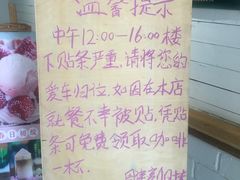 温馨提示
中午12:00-16:00楼
下贴条严重,请将您的
爱车归位,如因在本店
就餐不幸被贴,凭贴
条可免费领取咖啡
一杯.